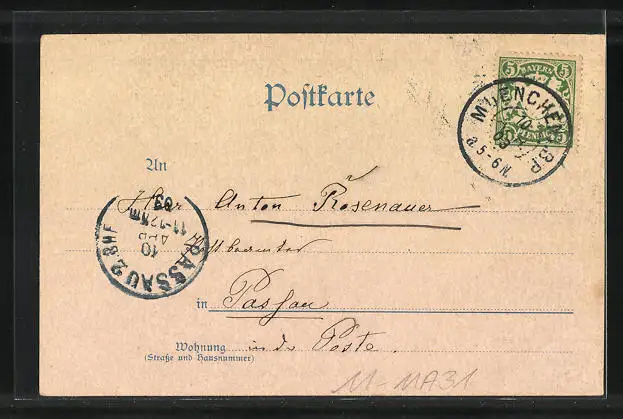 Postkarte
5 BAYERN 5
PFENNIG
MUENCHEN B.P.
10
03
a. 5-6 N.
An
Herr Anton Rosenauer
Postbeamter
PASSAU 2 BHF
10
APR
11-12 Vm
03
in Passau
Wohnung in der Poste.
(Straße und Hausnummer)
11-11A31